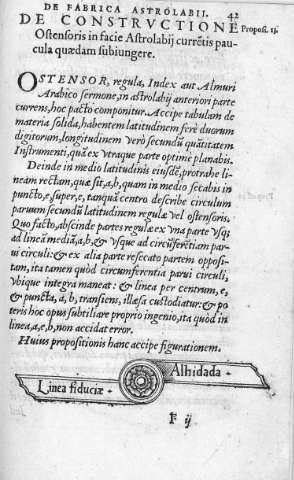 DE FABRICA ASTROLABII. 42
DE CONSTRVCTIONE Proposi. 13.
Ostensoris in facie Astrolabij currẽtis pau
cula quædam subiungere.
OSTENSOR, regula, Index aut Almuri
Arabico sermone, in astrolabij anteriori parte
currens, hoc pacto componitur. Accipe tabulam de
materia solida, habentem latitudinem ferè duorum
digitorum, longitudinem verò secundũ quãtitatem
Instrumenti, quã ex vtraque parte optimè planabis.
Deinde in medio latitudinis eiusdẽ, protrahe li-
neam rectam, quæ sit, a, b, quam in medio secabis in
puncto, e, super, e, tanquã centro describe circulum
paruum secundũ latitudinem regulæ vel ostensoris.
Quo facto, abscinde partes regulæ ex vna parte vsqȝ
ad lineã mediã, a, b, & vsque ad circũferẽtiam par-
ui circuli: & ex alia parte resecato partem opposi-
tam, ita tamen quòd circumferentia parui circuli,
vbique integra maneat: & linea per centrum, e,
& puncta, a, b, transiens, illæsa custodiatur: & po
teris hoc opus subtiliare proprio ingenio, ita quòd in
linea, a, e, b, non accidat error.
Huius propositionis hanc accipe figurationem.
Alhidada
Linea fiduciæ
F ij